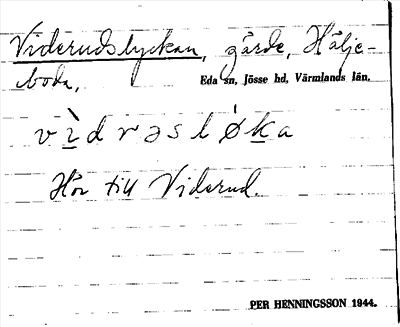 Viderudslyckan, gärde, Hälje-
boda,
Eda sn, Jösse hd, Värmlands län.
vìdrəslǿka
Hör till Viderud.
PER HENNINGSSON 1944.